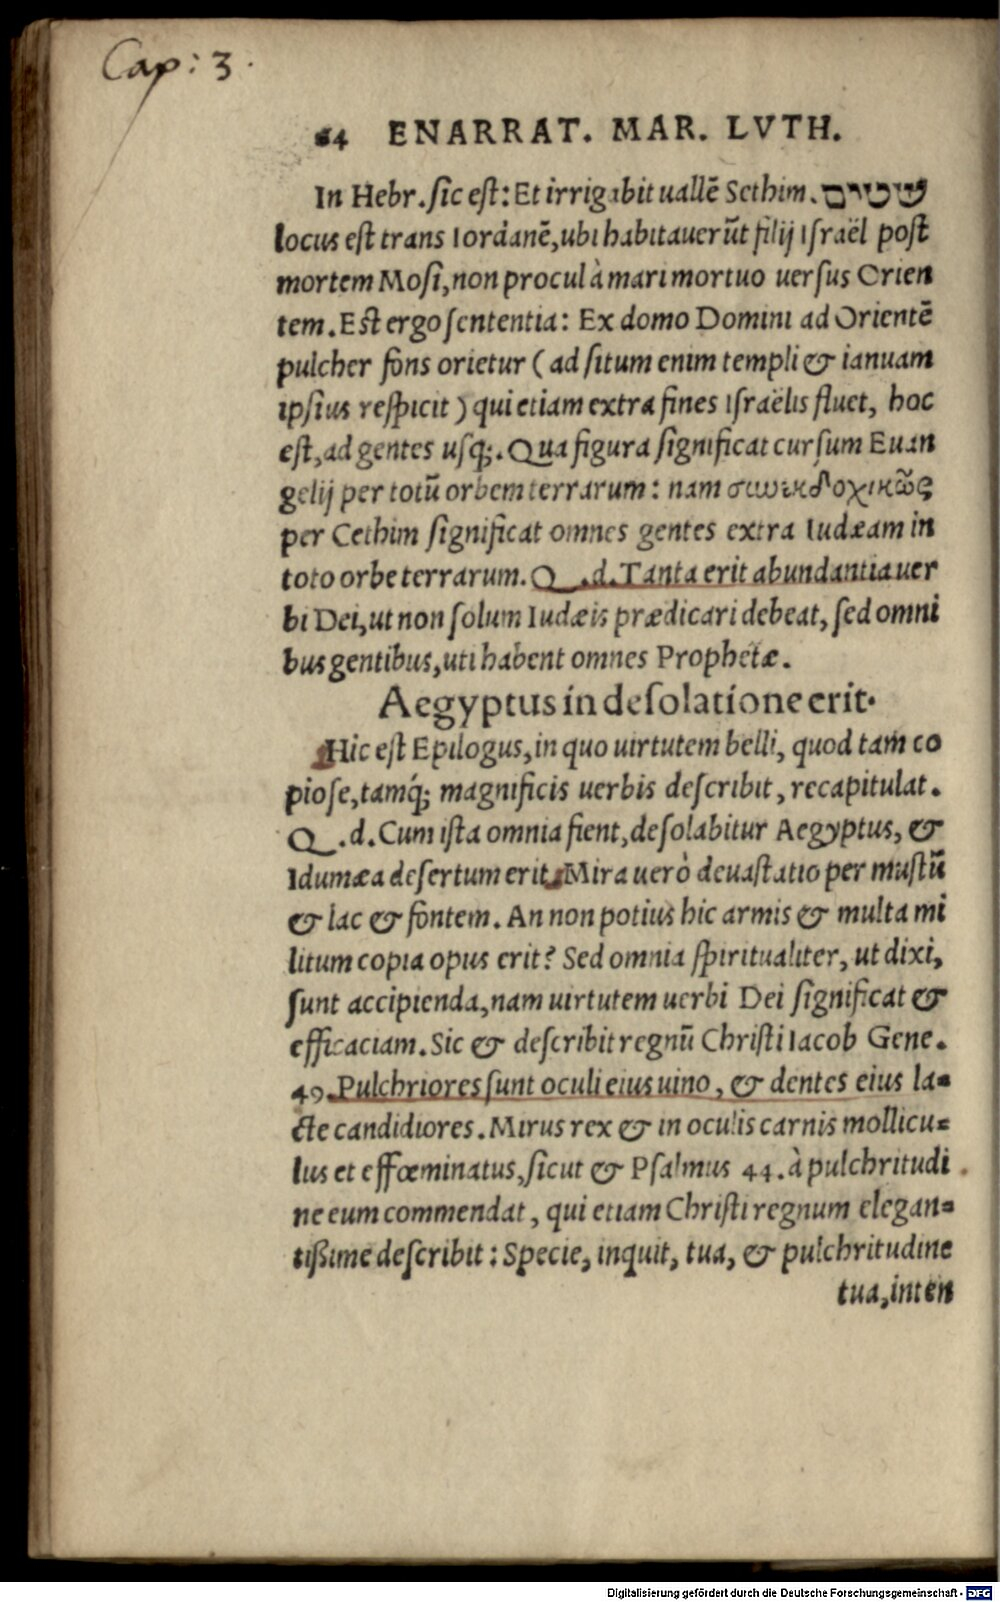 Cap: 3.
64 ENARRAT. MAR. LVTH.
In Hebr. sic est: Et irrigabit uallē Sethim. שטים
locus est trans Iordanē, ubi habitauerūt filij Israël post
mortem Mosi, non procul à mari mortuo uersus Orien
tem. Est ergo sententia: Ex domo Domini ad Orientē
pulcher fons orietur ( ad situm enim templi & ianuam
ipsius respicit ) qui etiam extra fines Israëlis fluet, hoc
est, ad gentes usq;. Qua figura significat cursum Euan
gelij per totū orbem terrarum: nam συνεκδοχικῶς
per Cethim significat omnes gentes extra Iudæam in
toto orbe terrarum. Q.d. Tanta erit abundantia uer
bi Dei, ut non solum Iudæis prædicari debeat, sed omni
bus gentibus, uti habent omnes Prophetæ.
Aegyptus in desolatione erit.
Hic est Epilogus, in quo uirtutem belli, quod tam co
piose, tamq́; magnificis uerbis describit, recapitulat.
Q.d. Cum ista omnia fient, desolabitur Aegyptus, &
Idumæa desertum erit. Mira uerò deuastatio per mustū
& lac & fontem. An non potius hic armis & multa mi
litum copia opus erit? Sed omnia spiritualiter, ut dixi,
sunt accipienda, nam uirtutem uerbi Dei significat &
efficaciam. Sic & describit regnū Christi Iacob Gene.
49. Pulchriores sunt oculi eius uino, & dentes eius la=
cte candidiores. Mirus rex & in oculis carnis mollicu=
lus et effœminatus, sicut & Psalmus 44. à pulchritudi
ne eum commendat, qui etiam Christi regnum elegan=
tißime describit: Specie, inquit, tua, & pulchritudine
tua, inten
Digitalisierung gefördert durch die Deutsche Forschungsgemeinschaft - DFG